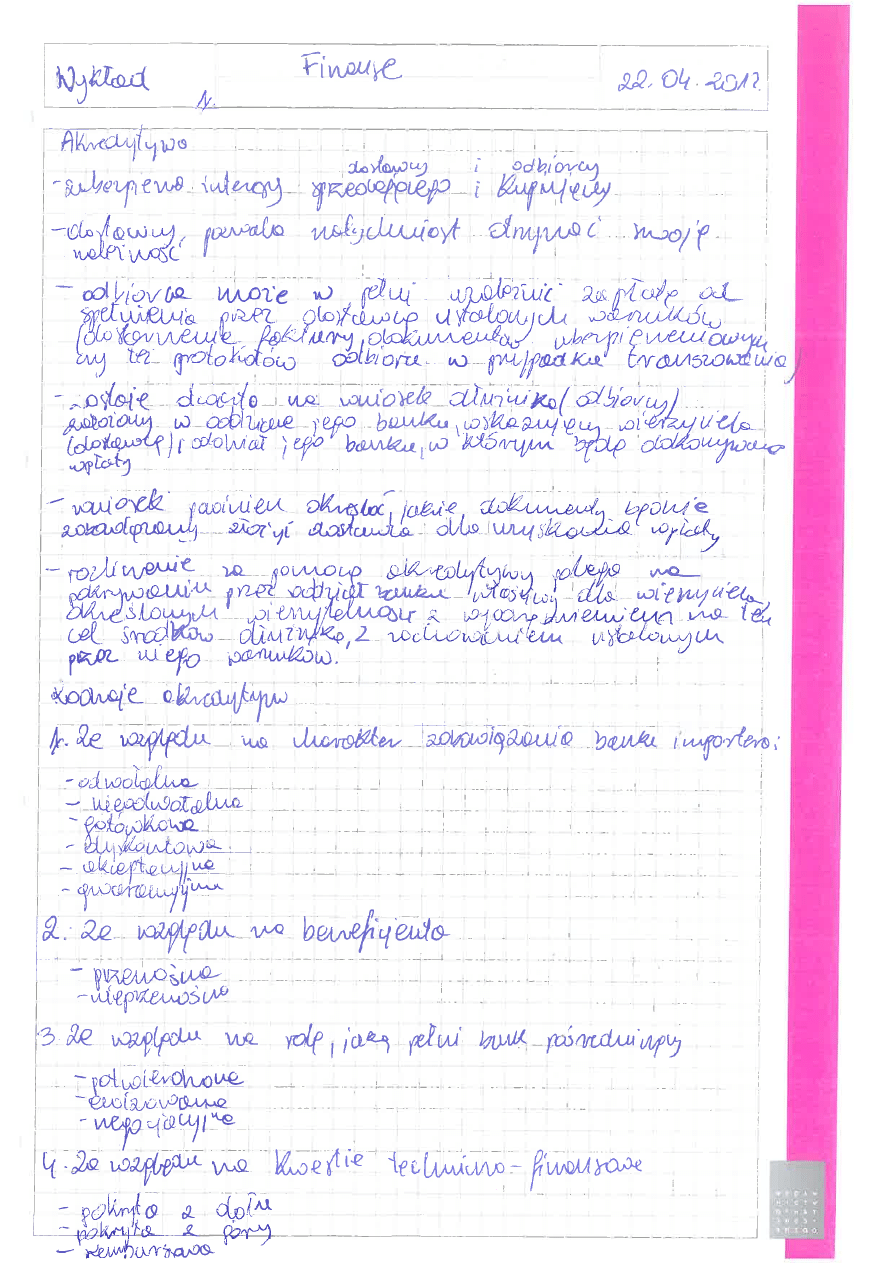 Wykład
Finanse
22.04.2012
1.
Akredytywa
dostawcy i odbiorcy
- zabezpiena interesy sprzedającego i kupujący
- dostawcy, pozwala natychmiast otrzymać swoję
należność
- odbiorca może w pełni uzależnić zapłatę od
spełnienia przez dostawcę ustalonych warunków
(dostarczenie faktury, dokumentów ubezpieczeniowym
czy też protokołów odbioru w przypadku transzowania)
- zostaje otwarta na wniosek dłużnika (odbiorcy)
złożony w oddziale jego banku, wskazujący wierzyciela
(dostawcę) i oddział jego banku, w którym będą dokonywane
wpłaty
- wniosek powinien określać, jakie dokumenty będzie
zobowiązany złożyć dostawca dla uzyskania wpłaty
- rozliczenie za pomocą akredytywy polega na
pokrywaniu przez oddział banku właściwy dla wierzyciela
określonym wierzytelności z wyodrębnieniem na ten
cel środków dłużnika, z zachowaniem ustalonym
przez niego warunków.
Rodzaje akredytyw
1. Ze względu na charakter zobowiązania banku importera:
- odwołalna
- nieodwołalna
- gotówkowa
- dyskontowa
- akceptacyjna
- gwarancyjna
2. Ze względu na beneficjenta
- przenośna
- nieprzenośna
3. Ze względu na rolę, jaką pełni bank pośredniczący
- potwierdzone
- awizowane
- negocjacyjne
4. Ze względu na kwestie techniczno-finansowe
- pokryta z dołu
- pokryta z góry
- rembursowa